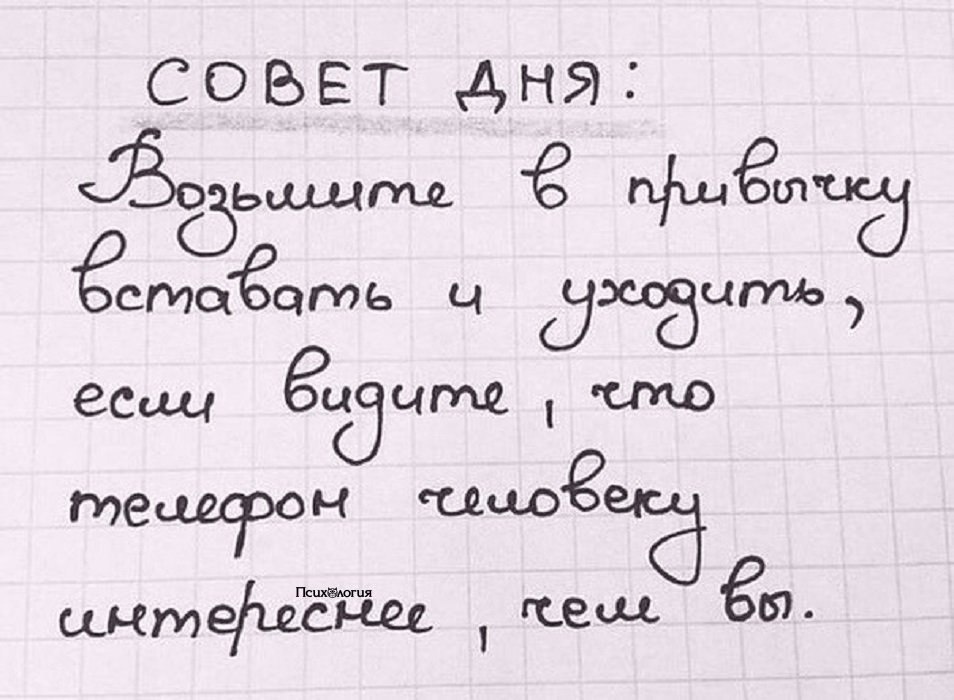 СОВЕТ ДНЯ:
Возьмите в привычку
вставать и уходить,
если видите, что
телефон человеку
Психология
интереснее, чем вы.